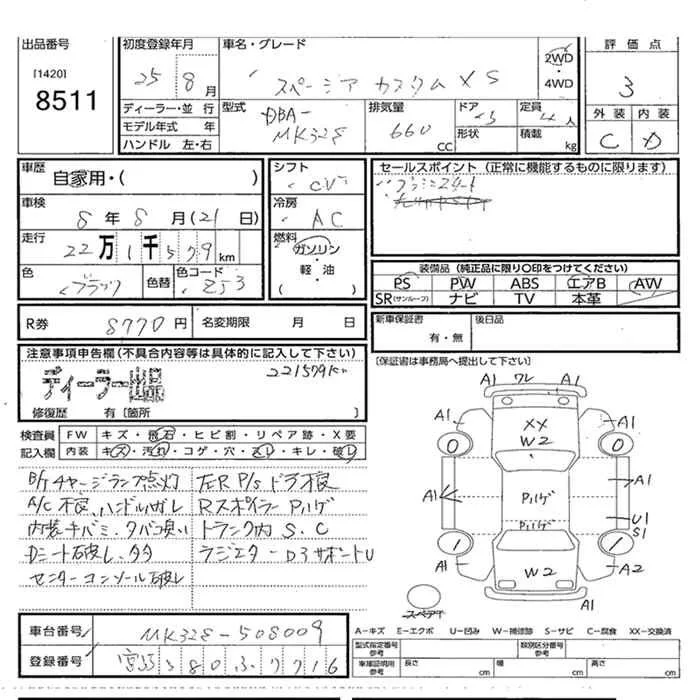 出品番号
[1420]
8511
初度登録年月
25 8月
車名・グレード
スペーシア カスタム XS
2WD
・
4WD
評価点
3
外装 内装
C D
ディーラー・並 行
モデル年式 年
ハンドル 左・右
型式
DBA-
MK32S
排気量
660 CC
ドア
5
形状
定員
4人
積載
kg
車歴
自家用・( )
車検
8年8月(21日)
走行
22万1千579km
色
ブラック
色替
色コード
ZJ3
シフト
CVT
冷房
AC
燃料
ガソリン
・
軽・油
( )
セールスポイント(正常に機能するものに限ります)
装備品(純正品に限り〇印をつけてください)
PS PW ABS エアB AW
SR(サンルーフ) ナビ TV 本革
R券 8770円
名変期限 月 日
新車保証書
有・無
後日品
[保証書は事務局へ提出して下さい]
注意事項申告欄(不具合内容等は具体的に記入して下さい)
ディーラー出品
221579km
修復歴 有[箇所 ]
検査員 FW キズ・飛石・ヒビ割・リペア跡・X要
記入欄 内装 キズ・汚れ・コゲ・穴・スレ・キレ・破れ
B/Tチャージランプ点灯
A/C不良、ハンドルハガレ
内装キバミ、タバコ臭い
Dシート破レ、多々
センターコンソール破レ
左R P/sドア不良
Rスポイラー Pハゲ
トランク内 S、C
ラジエターロアサポートU
A1 ワレ A1
A1 XX A1
0 W2 0
A1 Pハゲ A1
Pハゲ U1
S1
A1 W2 A2
A1
スペア
車台番号 MK32S-508009
登録番号 宮崎 580 ふ 7716
A-キズ E-エクボ U-凹み W-補修跡 S-サビ C-腐食 XX-交換済
型式指定番号
参考
類別区分番号
参考
車庫証明用
参考
長さ cm
幅 cm
高さ cm